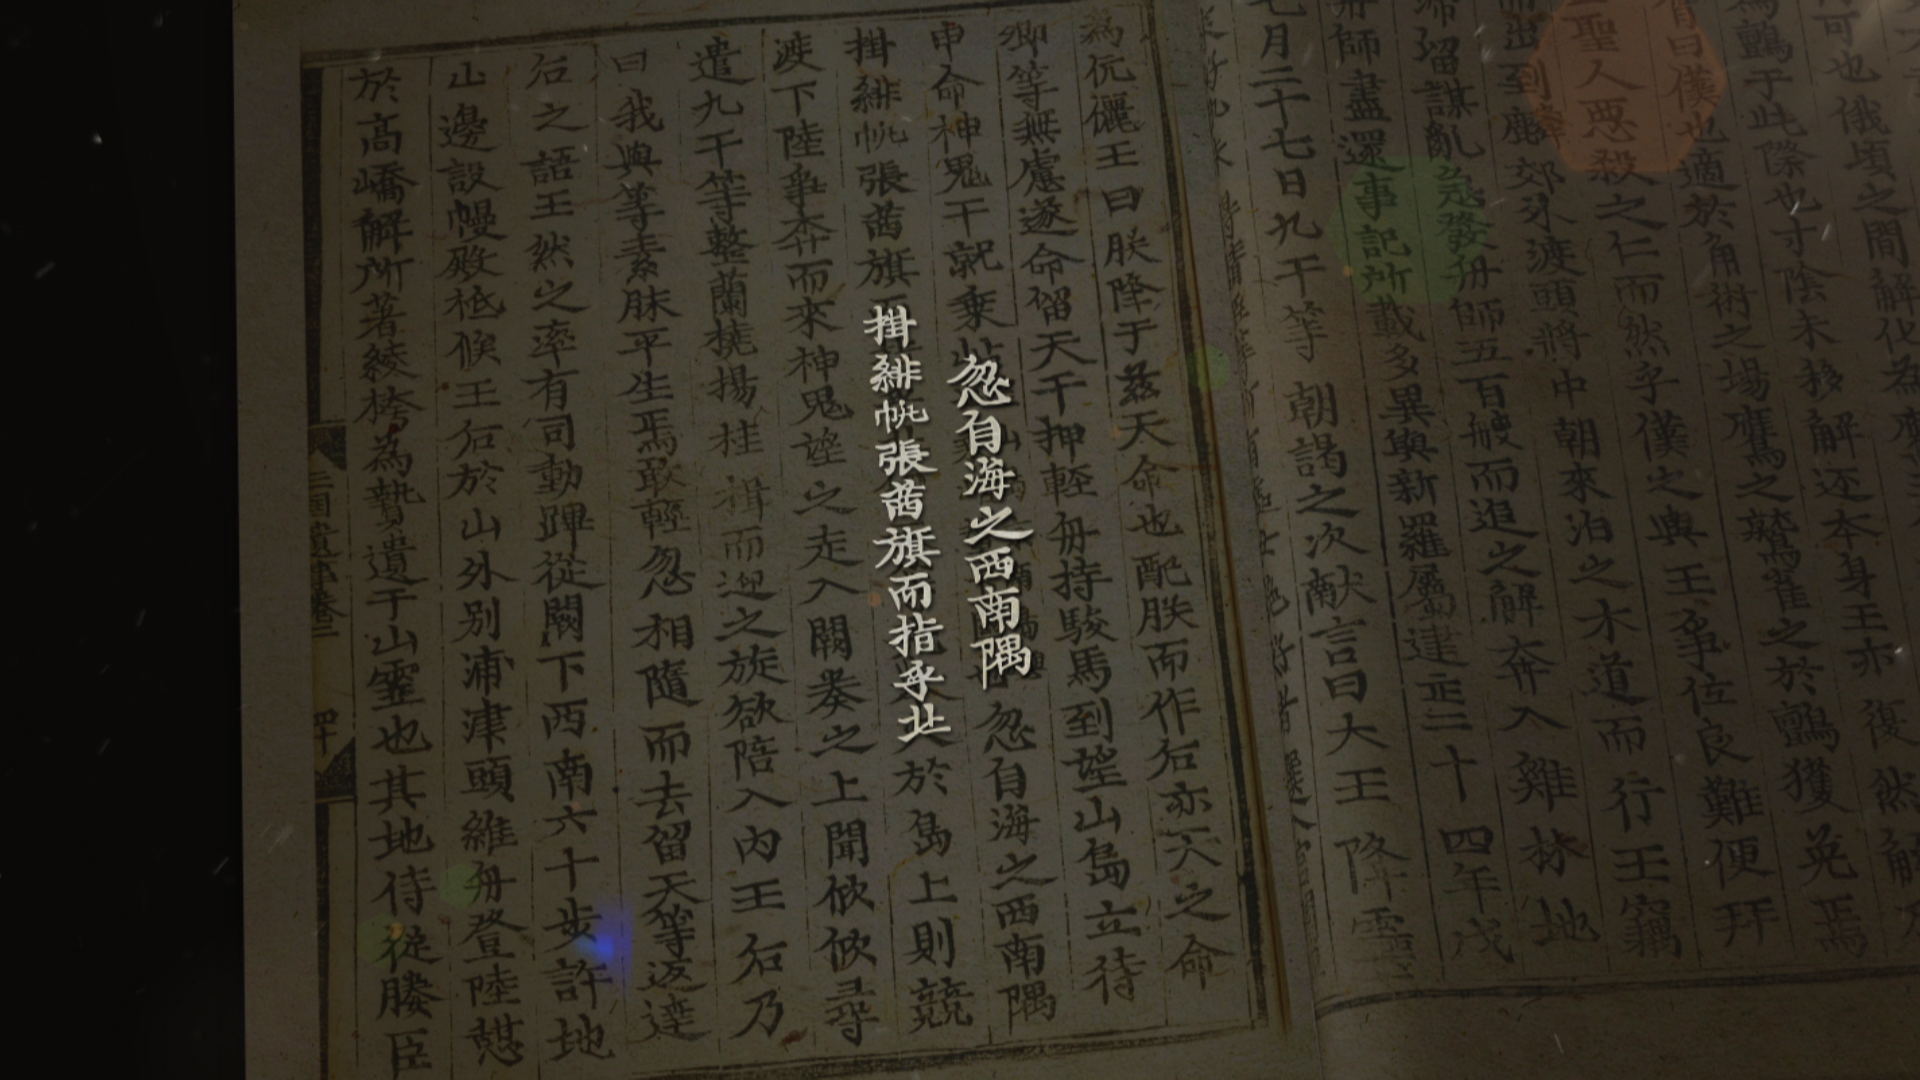 可也俄頃之間解化為鷹
為鸇于此際也寸陰未移解还本身王亦復然解
曰僕也適於角術之場鷹之鷲雀之於鸇獲免焉
聖人惡殺之仁而然乎僕之與王爭位良難便拜
而出到麟郊外渡頭將中朝來泊之水道而行王竊
留謀亂急發舟師五百艘而追之解奔入雞林地
舟師盡還事記所載多異與新羅屬建正二十四年戊
七月二十七日九干等朝謁之次献言曰大王降靈
為伉儷王曰朕降于兹天命也配朕而作后亦天之命
卿等無慮遂命留天干押輕舟持駿馬到望山島立待
申命神鬼干就乗忽自海之西南隅
掛緋帆張茜旗而於島上則競
忽自海之西南隅
掛緋帆張茜旗而指乎北
渡下陸爭奔而來神鬼望之走入闕奏之上聞欣欣尋
遣九干等整蘭橈揚桂楫而迎之旋欲陪入內王后乃
曰我與等素昧平生焉敢輕忽相隨而去留天等返達
后之語王然之率有司動蹕從闕下西南六十步許地
山邊設幔殿祗候王后於山外别浦津頭維舟登陸憩
於高嶠解所著綾袴為贄遺于山靈也其地侍從媵臣
三國遺事卷二 四十